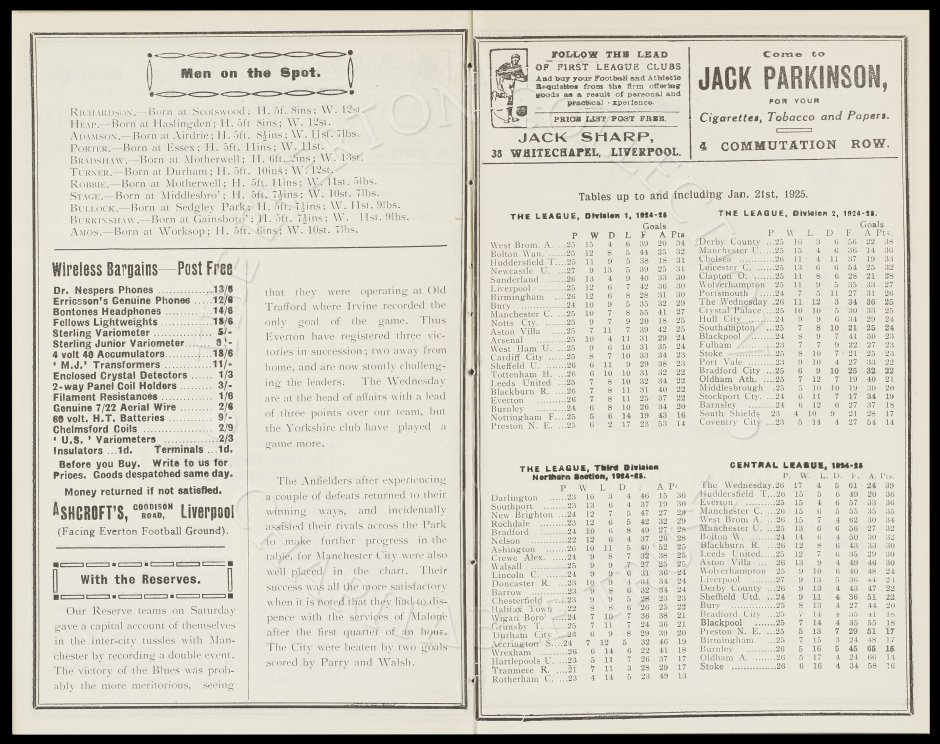 Men on the Spot.
RICHARDSON,—Born at Scotswood; H. 5f. 8ins; W. 12st.
HEAP,—Born at Haslingden; H. 5ft. 8ins; W. 12st.
ADAMSON,—Born at Airdrie; H. 5ft. 8½ins; W. 11st. 7lbs.
PORTER,—Born at Essex; H. 5ft. 11ins; W. 11st.
BRADSHAW,—Born at Motherwell; H. 6ft. 2ins; W. 13st.
TURNER,—Born at Durham; H. 5ft. 10ins; W. 12st.
ROBBIE,—Born at Motherwell; H. 5ft. 11ins; W. 11st. 5lbs.
STAGE,—Born at Middlesbro'; H. 5ft. 7½ins; W. 10st. 7lbs.
BULLOCK,—Born at Sedgley Park; H. 5ft. 7½ins; W. 11st. 9lbs.
BURKINSHAW,—Born at Gainsboro'; H. 5ft. 7½ins; W. 11st. 9lbs.
AMOS,—Born at Worksop; H. 5ft. 6ins; W. 10st. 7lbs.
Wireless Bargains—Post Free
Dr. Nespers Phones 13/6
Erricsson's Genuine Phones 12/6
Bontones Headphones 14/6
Fellows Lightweights 18/6
Sterling Variometer 5/-
Sterling Junior Variometer 3/-
4 volt 40 Accumulators 18/6
'M.J.' Transformers 11/-
Enclosed Crystal Detectors 1/3
2-way Panel Coil Holders 3/-
Filament Resistances 1/6
Genuine 7/22 Aerial Wire 2/6
60 volt. H.T. Batteries 9/-
Chelmsford Coils 2/9
'U.S.' Variometers 2/3
Insulators ...1d. Terminals ...1d.
Before you Buy. Write to us for
Prices. Goods despatched same day.
Money returned if not satisfied.
ASHCROFT'S, GOODISON ROAD, Liverpool
(Facing Everton Football Ground).
With the Reserves.
Our Reserve teams on Saturday
gave a capital account of themselves
in the inter-city tussles with Man-
chester by recording a double event.
The victory of the Blues was prob-
ably the more meritorious, seeing
that they were operating at Old
Trafford where Irvine recorded the
only goal of the game. Thus
Everton have registered three vic-
tories in succession; two away from
home, and are now stoutly challeng-
ing the leaders. The Wednesday
are at the head of affairs with a lead
of three points over our team, but
the Yorkshire club have played a
game more.
The Anfielders after experiencing
a couple of defeats returned to their
winning ways, and incidentally
assisted their rivals across the Park
to make further progress in the
table, for Manchester City were also
well placed in the chart. Their
success was all the more satisfactory
when it is noted that they had to dis-
pence with the services of Malone
after the first quarter of an hour.
The City were beaten by two goals
scored by Parry and Walsh.
FOLLOW THE LEAD
OF FIRST LEAGUE CLUBS
And buy your Football and Athletic
Requisites from the firm offering
goods as a result of personal and
practical experience.
PRICE LIST POST FREE.
JACK SHARP,
38 WHITECHAPEL, LIVERPOOL.
Come to
JACK PARKINSON,
FOR YOUR
Cigarettes, Tobacco and Papers.
4 COMMUTATION ROW.
Tables up to and including Jan. 21st, 1925.
THE LEAGUE, Division 1, 1924-25
Goals
P W D L F A Pts
West Brom. A. 25 15 4 6 39 20 34
Bolton Wan. 25 12 8 5 44 25 32
Huddersfield T. 25 11 9 5 38 18 31
Newcastle U. 27 9 13 5 39 25 31
Sunderland 26 13 4 9 40 33 30
Liverpool 25 12 6 7 42 36 30
Birmingham 26 12 6 8 28 31 30
Bury 24 10 9 5 35 32 29
Manchester C. 25 10 7 8 55 41 27
Notts Cty. 25 9 7 9 20 18 25
Aston Villa 25 7 11 7 39 42 25
Arsenal 25 10 4 11 31 29 24
West Ham U. 25 9 6 10 31 35 24
Cardiff City 25 8 7 10 33 34 23
Sheffield U. 26 6 11 9 29 38 21
Tottenham H. 26 6 10 10 31 32 22
Leeds United 25 7 8 10 32 34 22
Blackburn R. 26 7 8 11 31 40 22
Everton 26 7 8 11 25 37 22
Burnley 24 6 8 10 26 34 20
Nottingham F. 25 5 6 14 19 43 16
Preston N. E. 25 6 2 17 23 53 14
THE LEAGUE, Division 2, 1924-25.
Goals
P. W. D. L. F. A Pts.
Derby County 25 16 3 6 56 22 38
Manchester U. 25 15 4 6 36 14 36
Chelsea 26 11 4 11 37 19 33
Leicester C. 25 13 6 6 54 25 32
Clapton O. 25 11 8 6 28 21 28
Wolverhampton 25 11 9 5 35 33 27
Portsmouth 24 7 5 11 27 31 26
The Wednesday 26 11 12 3 34 36 25
Crystal Palace 25 10 10 5 30 33 25
Hull City 24 9 9 6 34 29 24
Southampton 25 7 8 10 21 25 24
Blackpool 24 8 9 7 41 30 23
Fulham 23 7 7 9 22 27 23
Stoke 25 8 10 7 21 25 23
Port Vale 23 9 10 4 27 33 22
Bradford City 25 6 9 10 25 32 22
Oldham Ath. 25 7 12 7 19 40 21
Middlesbrough 25 5 10 10 19 30 20
Stockport Cty. 24 6 11 7 17 34 19
Barnsley 24 6 12 6 27 37 18
South Shields 23 4 10 9 21 28 17
Coventry City 23 5 14 4 27 54 14
THE LEAGUE, Third Division
Northern Section, 1924-25.
P W L D F A Pt
Darlington 23 16 3 4 46 15 36
Southport 23 13 6 4 37 19 30
New Brighton 24 12 7 5 47 27 29
Rochdale 23 12 6 5 42 32 29
Bradford 24 10 6 8 49 27 28
Nelson 22 12 6 4 37 26 28
Ashington 26 10 11 5 40 52 25
Crewe Alex. 24 9 8 7 32 38 25
Walsall 25 9 9 7 27 25 25
Lincoln C. 24 9 9 6 31 36 24
Doncaster R. 23 10 9 4 34 34 24
Barrow 23 9 8 6 32 34 24
Chesterfield 23 9 9 5 28 23 23
Halifax Town 22 8 8 6 26 25 22
Wigan Boro' 24 7 10 7 36 38 21
Grimsby T. 25 7 11 7 24 36 21
Durham City 23 6 9 8 29 39 20
Accrington S. 24 7 12 5 32 46 19
Wrexham 26 6 14 6 22 41 18
Hartlepools U. 23 5 11 7 26 37 17
Tranmere R. 21 7 11 3 28 29 17
Rotherham C. 23 4 14 5 23 49 13
CENTRAL LEAGUE, 1924-25
P. W. L. D. F. A. Pts
The Wednesday 26 17 4 5 61 24 39
Huddersfield T. 26 15 5 6 49 20 36
Everton 25 15 4 6 57 33 36
Manchester C. 26 15 6 5 55 35 35
West Brom A. 26 15 7 4 62 30 34
Manchester U. 25 13 6 6 56 27 32
Bolton W. 24 14 6 4 50 30 32
Blackburn R. 26 12 8 6 43 33 30
Leeds United 25 12 7 6 35 29 30
Aston Villa 26 13 9 4 49 46 30
Wolverhampton 25 9 10 6 40 48 24
Liverpool 27 9 13 5 36 44 23
Derby County 26 9 13 4 43 47 22
Sheffield Utd. 24 9 11 4 36 51 22
Bury 25 8 13 4 27 44 20
Bradford City 25 7 14 4 35 41 18
Blackpool 25 7 14 4 35 55 18
Preston N. E. 25 5 13 7 29 51 17
Birmingham 25 7 15 3 24 48 17
Burnley 26 5 16 5 45 65 15
Oldham A. 26 5 17 4 24 66 14
Stoke 26 6 16 4 34 58 16